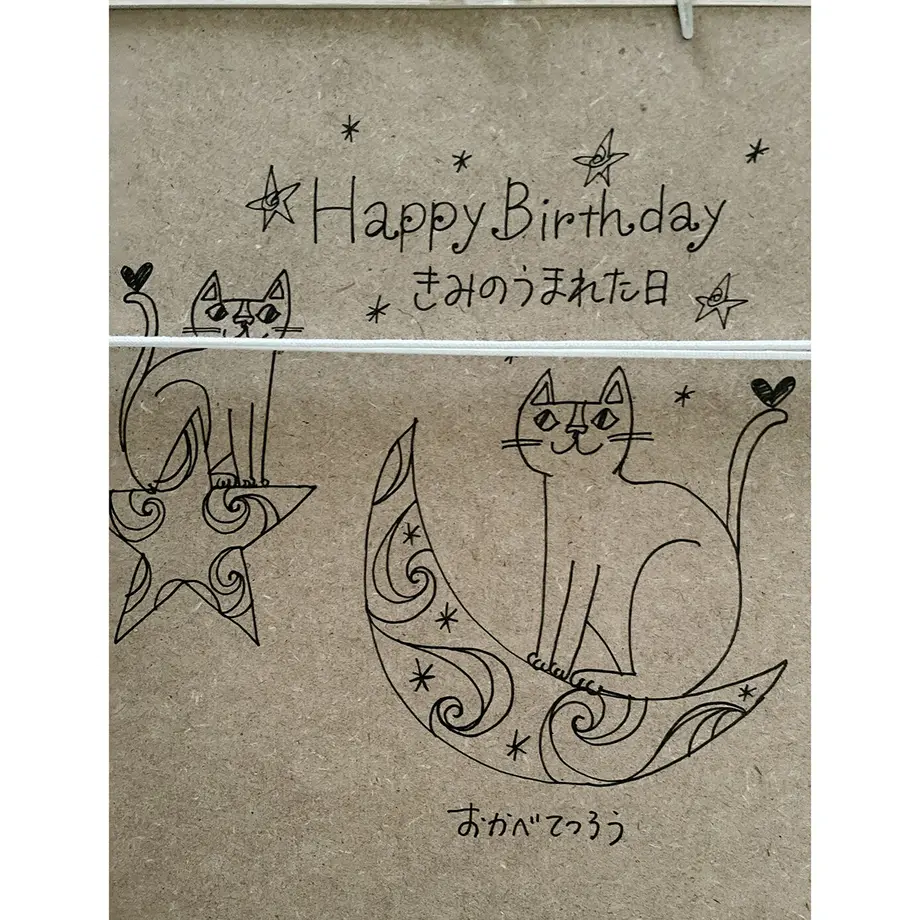 Happy Birthday
きみのうまれた日
おかべてつろう